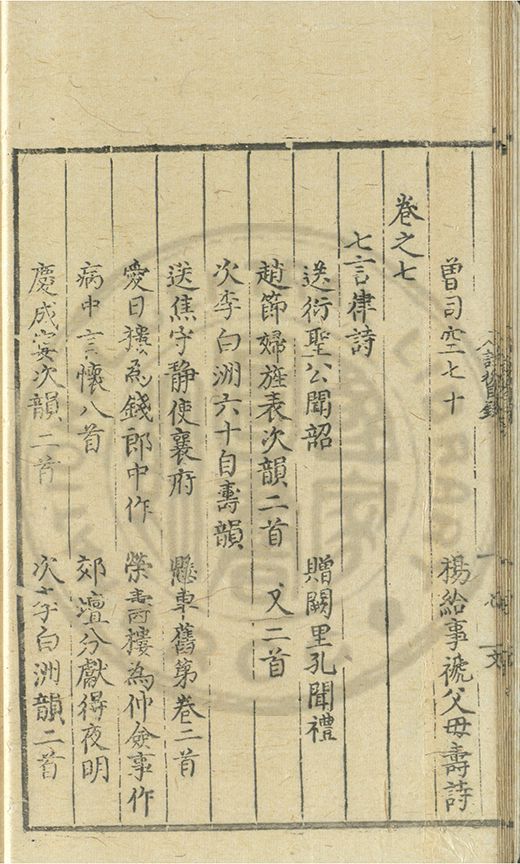 曾司空七十　楊給事褫父母壽詩
卷之七
七言律詩
送衍聖公聞韶　贈闕里孔聞禮
趙節婦旌表次韻二首　又二首
次李白洲六十自壽韻
送焦守靜使襄府　懸車舊第卷二首
愛日樓為錢郎中作　榮壽樓為仲僉事作
病中言懷八首　郊壇分獻得夜明
慶成宴次韻二首　次李白洲韻二首